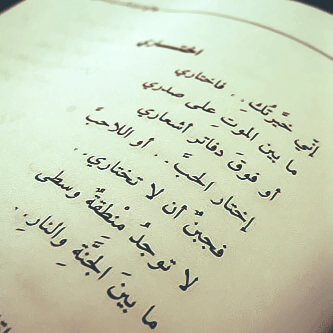 اختاري
إنّي خيّرتُكِ .. فاختاري
ما بين الموتِ على صدري
أو فوقَ دفاترِ أشعاري
إختاري الحبَّ .. أو اللاحبَّ
فجبنٌ أن لا تختاري ..
لا توجدُ منطقةٌ وسطى
ما بينَ الجنّةِ والنارِ ..